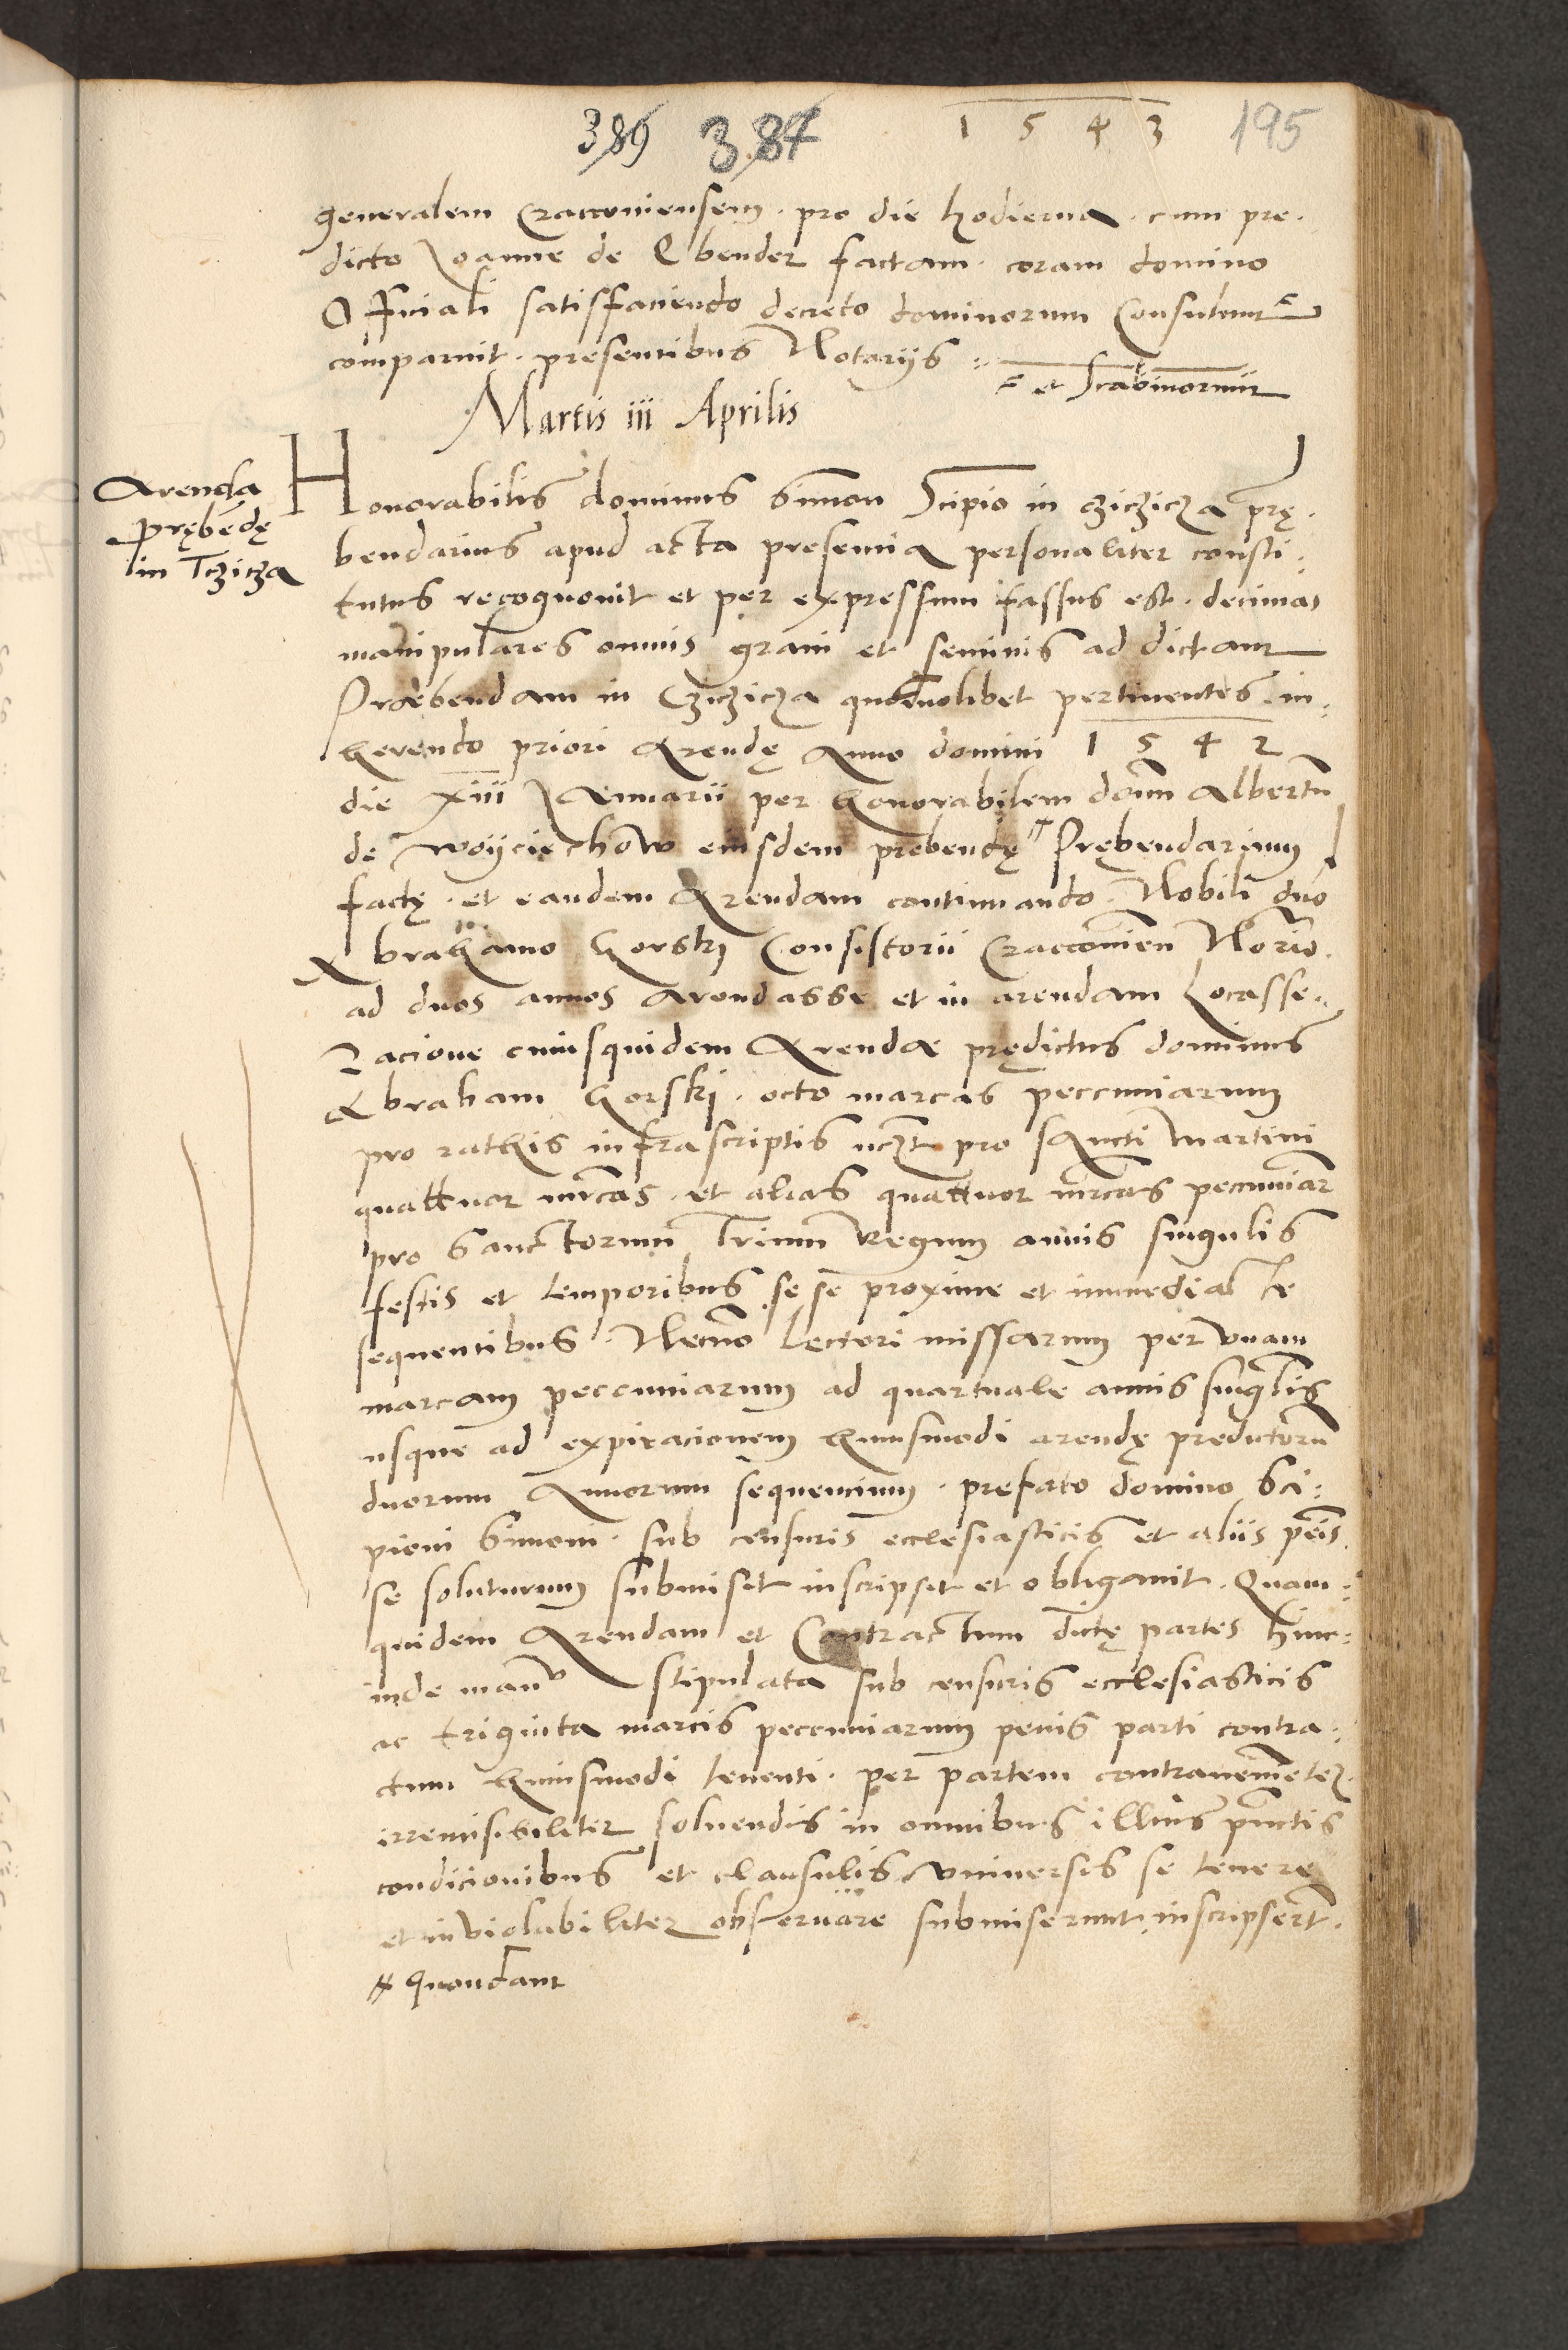 389 387 1543 195
generalem Cracoviensem . pro die hodierna . cum pre-
dicto Joanne de Qbender factam . coram domino
Officiali satisfaciendo decreto dominorum Consulum
comparuit . presentibus Notariis
et Scabinorum
Martis iii Aprilis
Arenda
Prębendę
in Tczicza
Honorabilis dominus Simon Scipio in Cziczicza prę-
bendarius apud acta presentia personaliter consti-
tutus recognovit et per expressum fassus est . decimas
manipulares omnis grani et seminis ad dictam
Praebendam in Cziczicza quomolibet pertinentes . in-
herendo priori Arendę Anno domini 1542
die xiii Januarii per honorabilem domn Albertu
de Woyciechow eiusdem prebendę Prębendarium
factę . et eandem Arendam continuando . Nobili dno
Abrahamo Gorskj Consistorii Cracovien Notario .
ad duos annos arendasse et in arendam Locasse .
Racione cuiusquidem Arendae prędictus dominus
Abraham Gorskj . octo marcas peccuniarum
pro rathis infrascriptis vczt pro Sancti Martini
quattuor mrcas . et alias quattuor mrcas pecuniar
pro Sanctorum Trium Regum annis singulis
festis et temporibus se se proxime et immediate
sequentibus . Necno Lectori missarum per unam
marcam peccuniarum ad quartuale annis singulis
usque ad expiracionem huiusmodi arendę predictoru
duorum Annorum sequencium . prefato domino Sci-
pioni Simoni . sub censuris ecclesiasticis et aliis penis
se soluturum submisit inscripsit et obligavit . Quam-
quidem Arendam et Contractum dictę partes hinc-
inde manu stipulata sub censuris ecclesiasticis
ac triginta marcis peccuniarum penis parti contra-
ctum huiusmodi tenenti . per partem contravenientez
irremisibiliter solvendis in omnibus illius punctis
condicionibus et clausulis universis se tenere
et inviolabiliter observare submiserunt inscripsert .
quondam